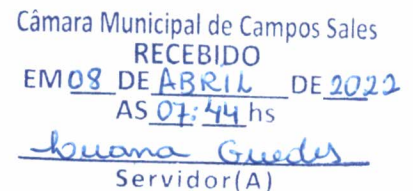 Câmara Municipal de Campos Sales
RECEBIDO
EM 08 DE ABRIL DE 2022
AS 07:44 hs
Luana Guedes
Servidor(A)